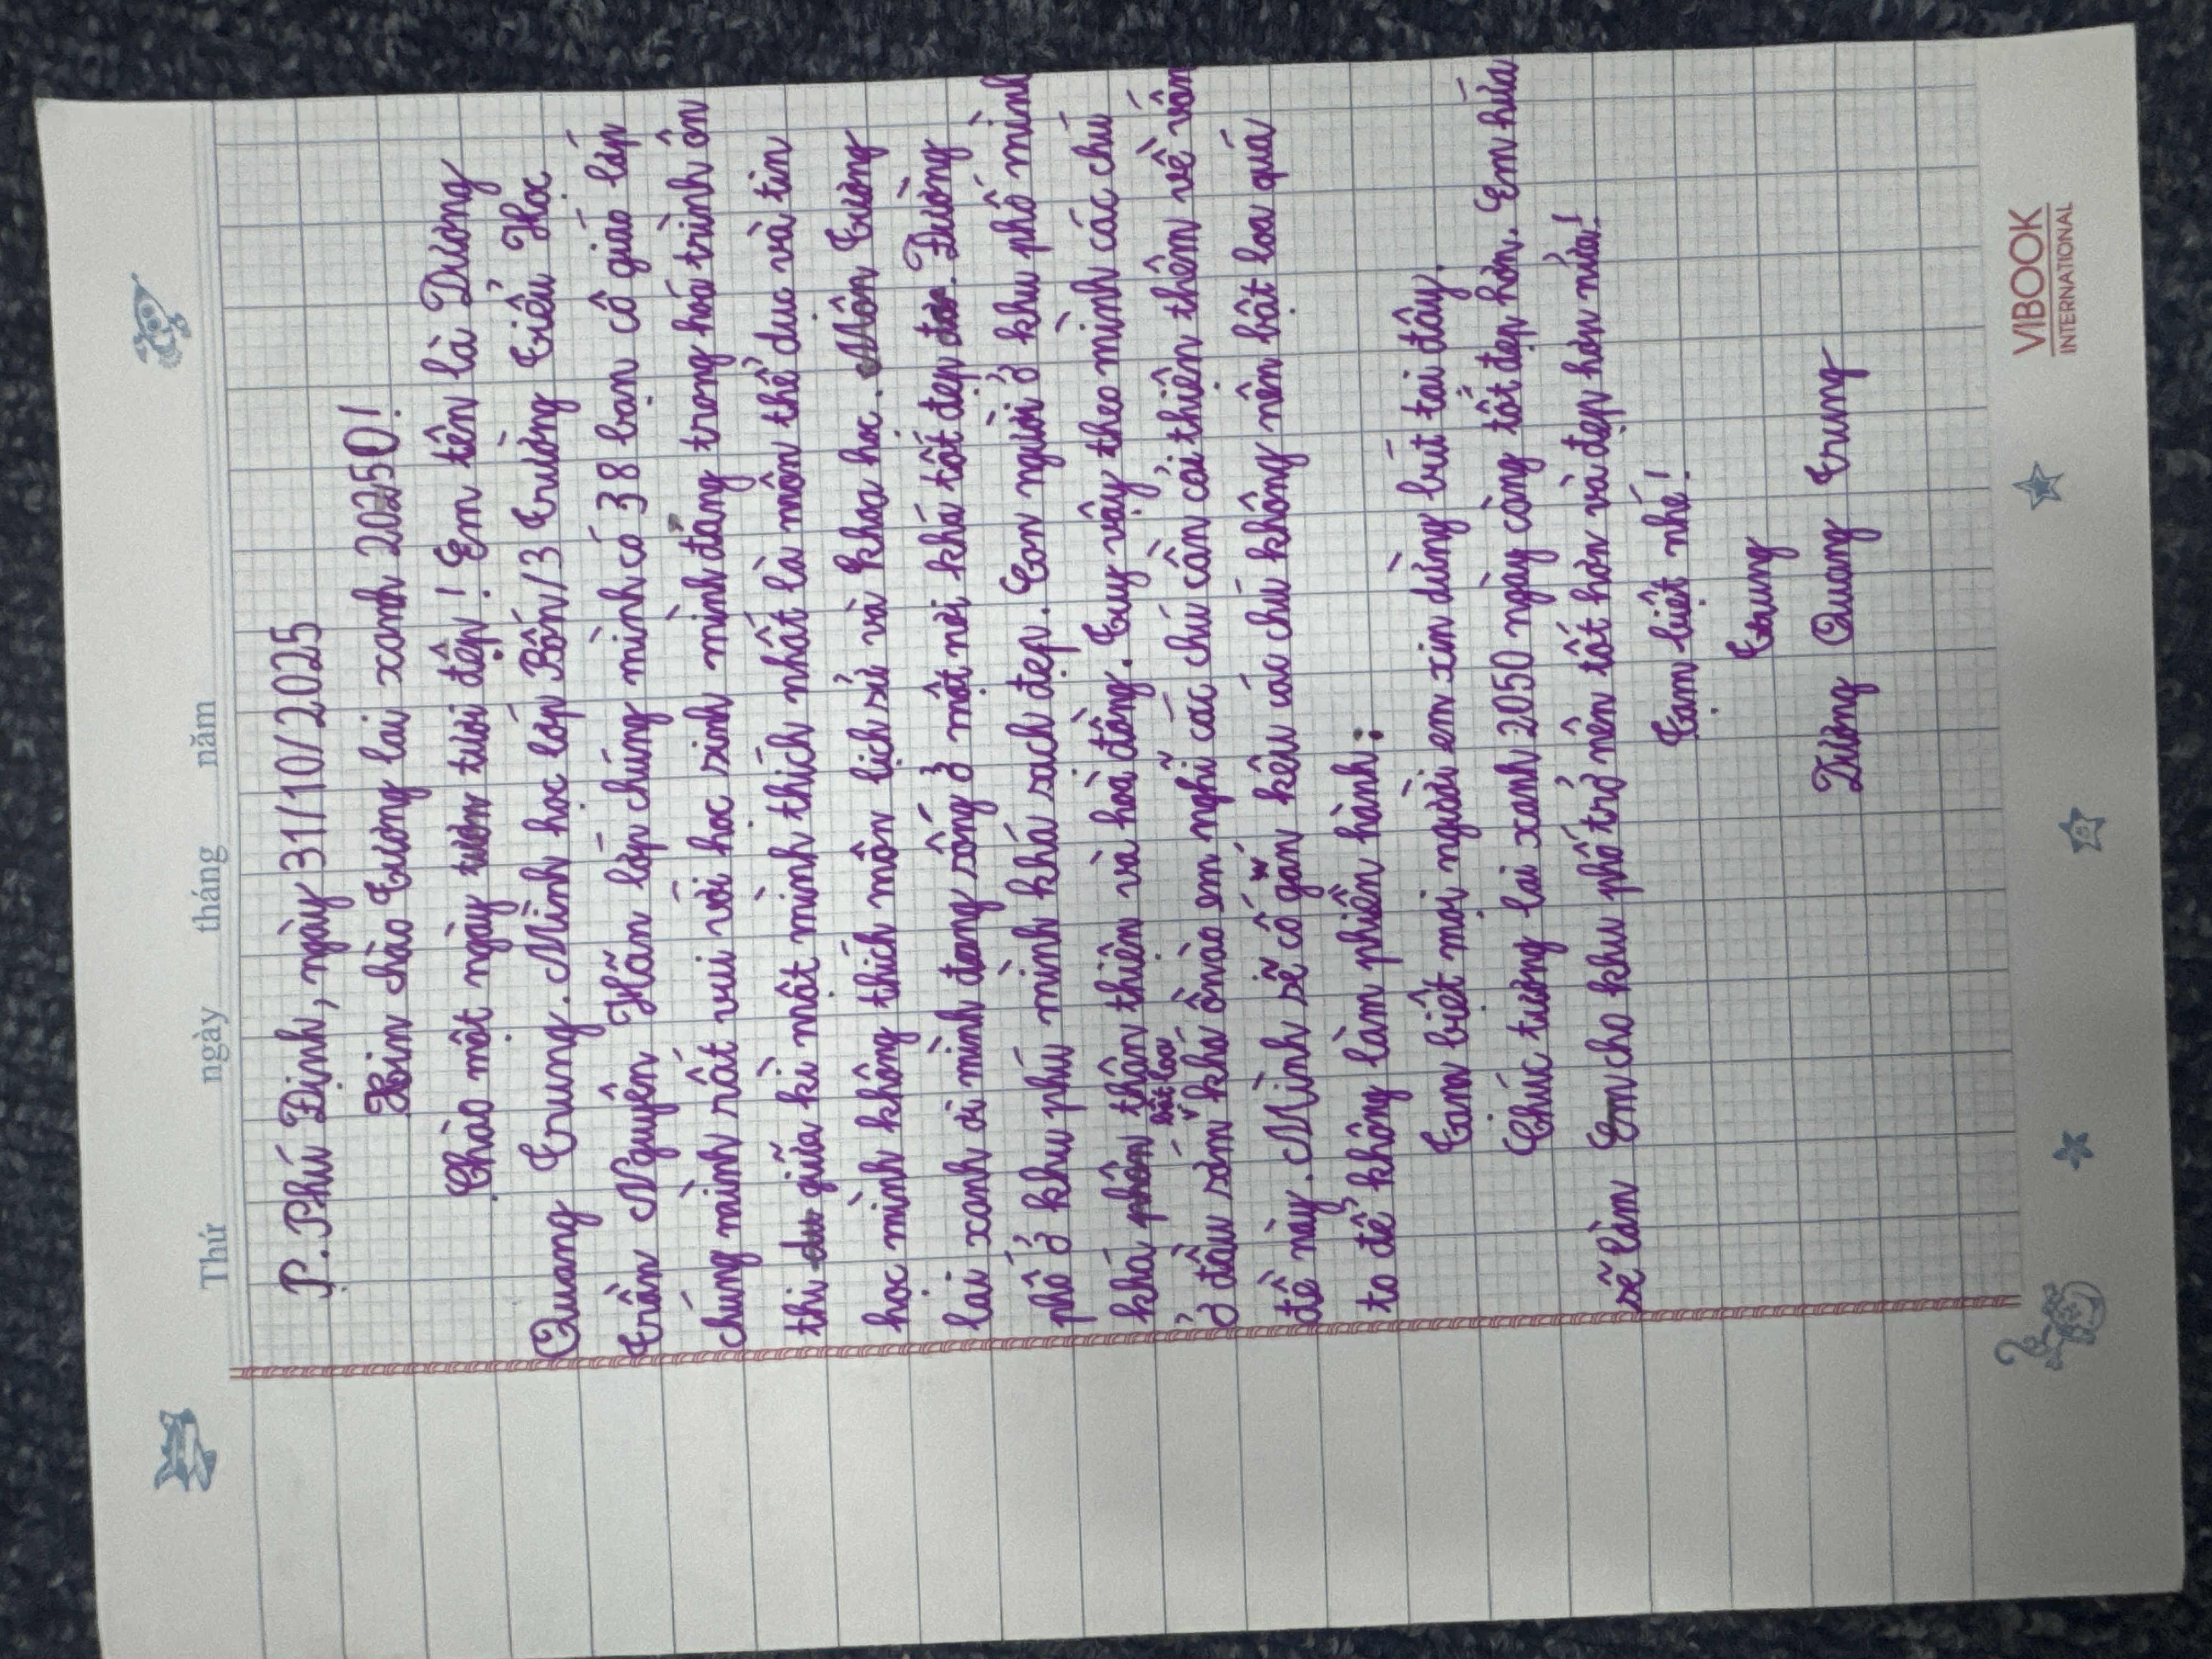 Thứ ngày tháng năm
P. Phú Định, ngày 31/10/2025
Xin chào Tương lai xanh 2050!
Chào một ngày tươi đẹp! Em tên là Dương
Quang Trung. Mình học lớp Bốn/3 Trường Tiểu Học
Trần Nguyên Hãn lớp chúng mình có 38 bạn cô giáo lớp
chúng mình rất vui với học sinh mình đang trong hoá trình ôn
thi giữa kì một mình thích nhất là môn thể dục và tin
học mình không thích môn lịch sử và khoa học. Tương
lai xanh ơi mình đang sống ở một nơi khá tốt đẹp. Đường
phố ở khu phú mình khá sạch đẹp. Con người ở khu phố mình
khá thân thiên và hoà đồng. Tuy vậy theo mình các chú
bật loa
ở đầu sớm khá ồn ào em nghĩ các chú cần cải thiên thêm về vấn
đề này. Mình sẽ cố gắn kêu các chú không nên bật loa quá
to để không làm phiền hành.
Tạm biệt mọi người em xin dừng bút tại đây.
Chúc tương lai xanh 2050 ngày càng tốt đẹp hơn. Em hứa
sẽ làm cho khu phố trở nên tốt hơn và đẹp hơn nữa!
Tạm biệt nhé!
Trung
Dương Quang Trung
VIBOOK
INTERNATIONAL